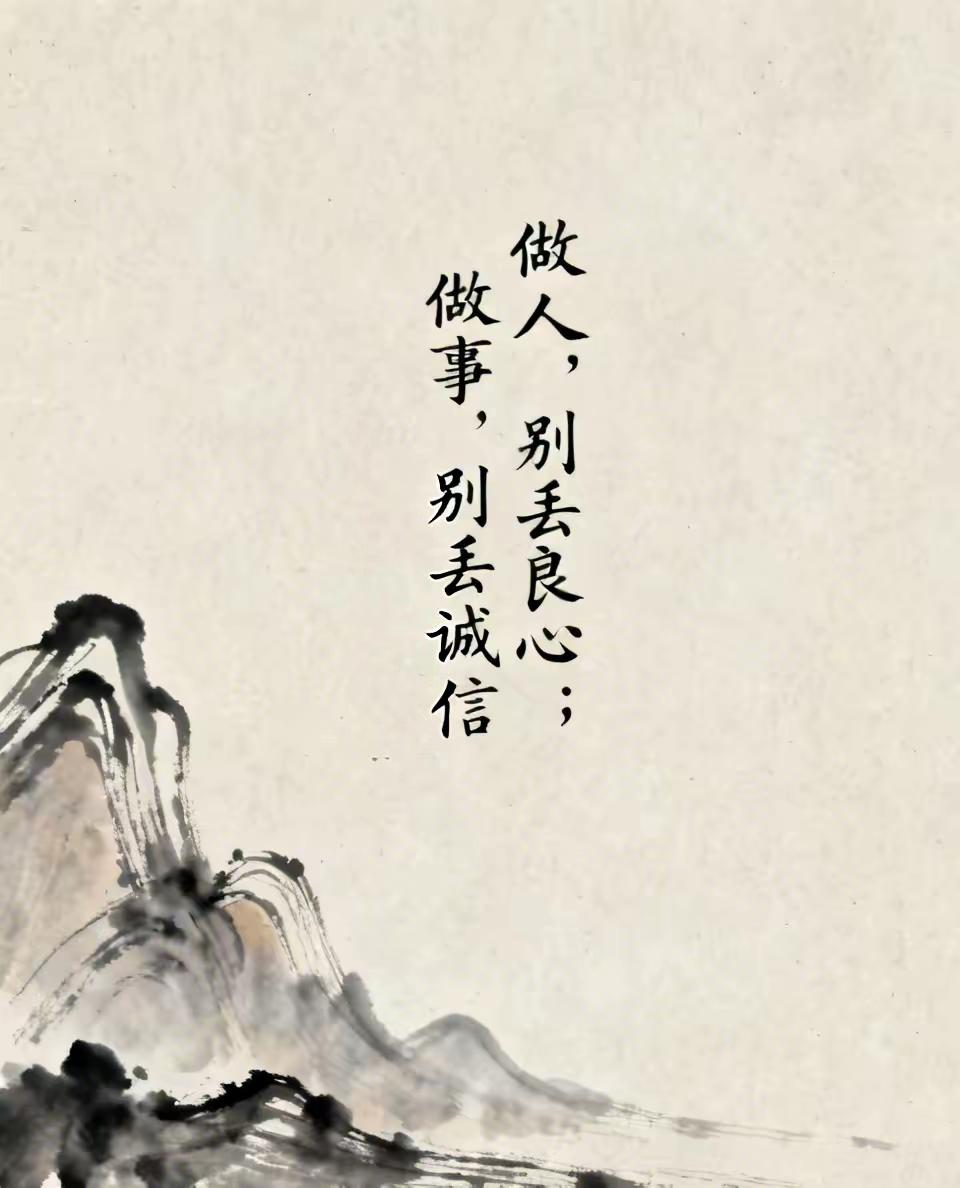 做人，别丢良心；
做事，别丢诚信